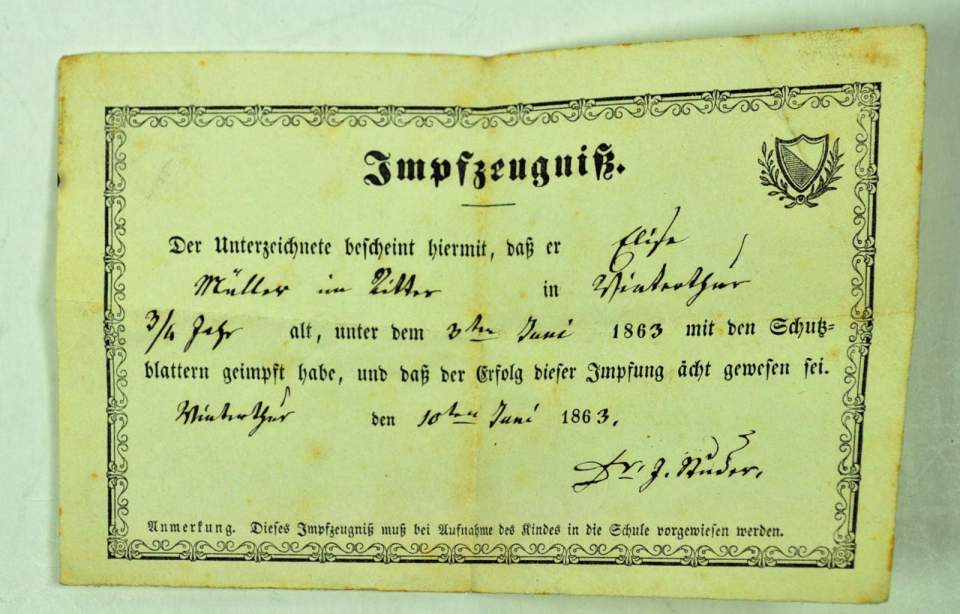 Impfzeugniß.
Der Unterzeichnete bescheint hiermit, daß er Elise
Müller im Ritter in Winterthur
3/4 Jahr alt, unter dem 3ten Juni 1863 mit den Schutz=
blattern geimpft habe, und daß der Erfolg dieser Impfung ächt gewesen sei.
Winterthur den 10ten Juni 1863.
Dr. J. Studer.
Anmerkung. Dieses Impfzeugniß muß bei Aufnahme des Kindes in die Schule vorgewiesen werden.